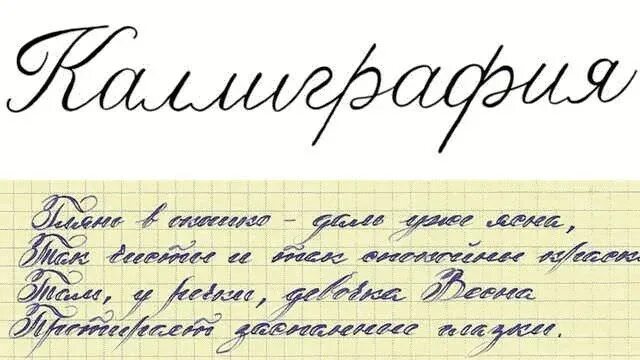 Каллиграфия
Глянь в окошко - даль уже ясна,
Так чисты и так спокойны краск
Там, у речки, девочка Весна
Протирает заспанные глазки.